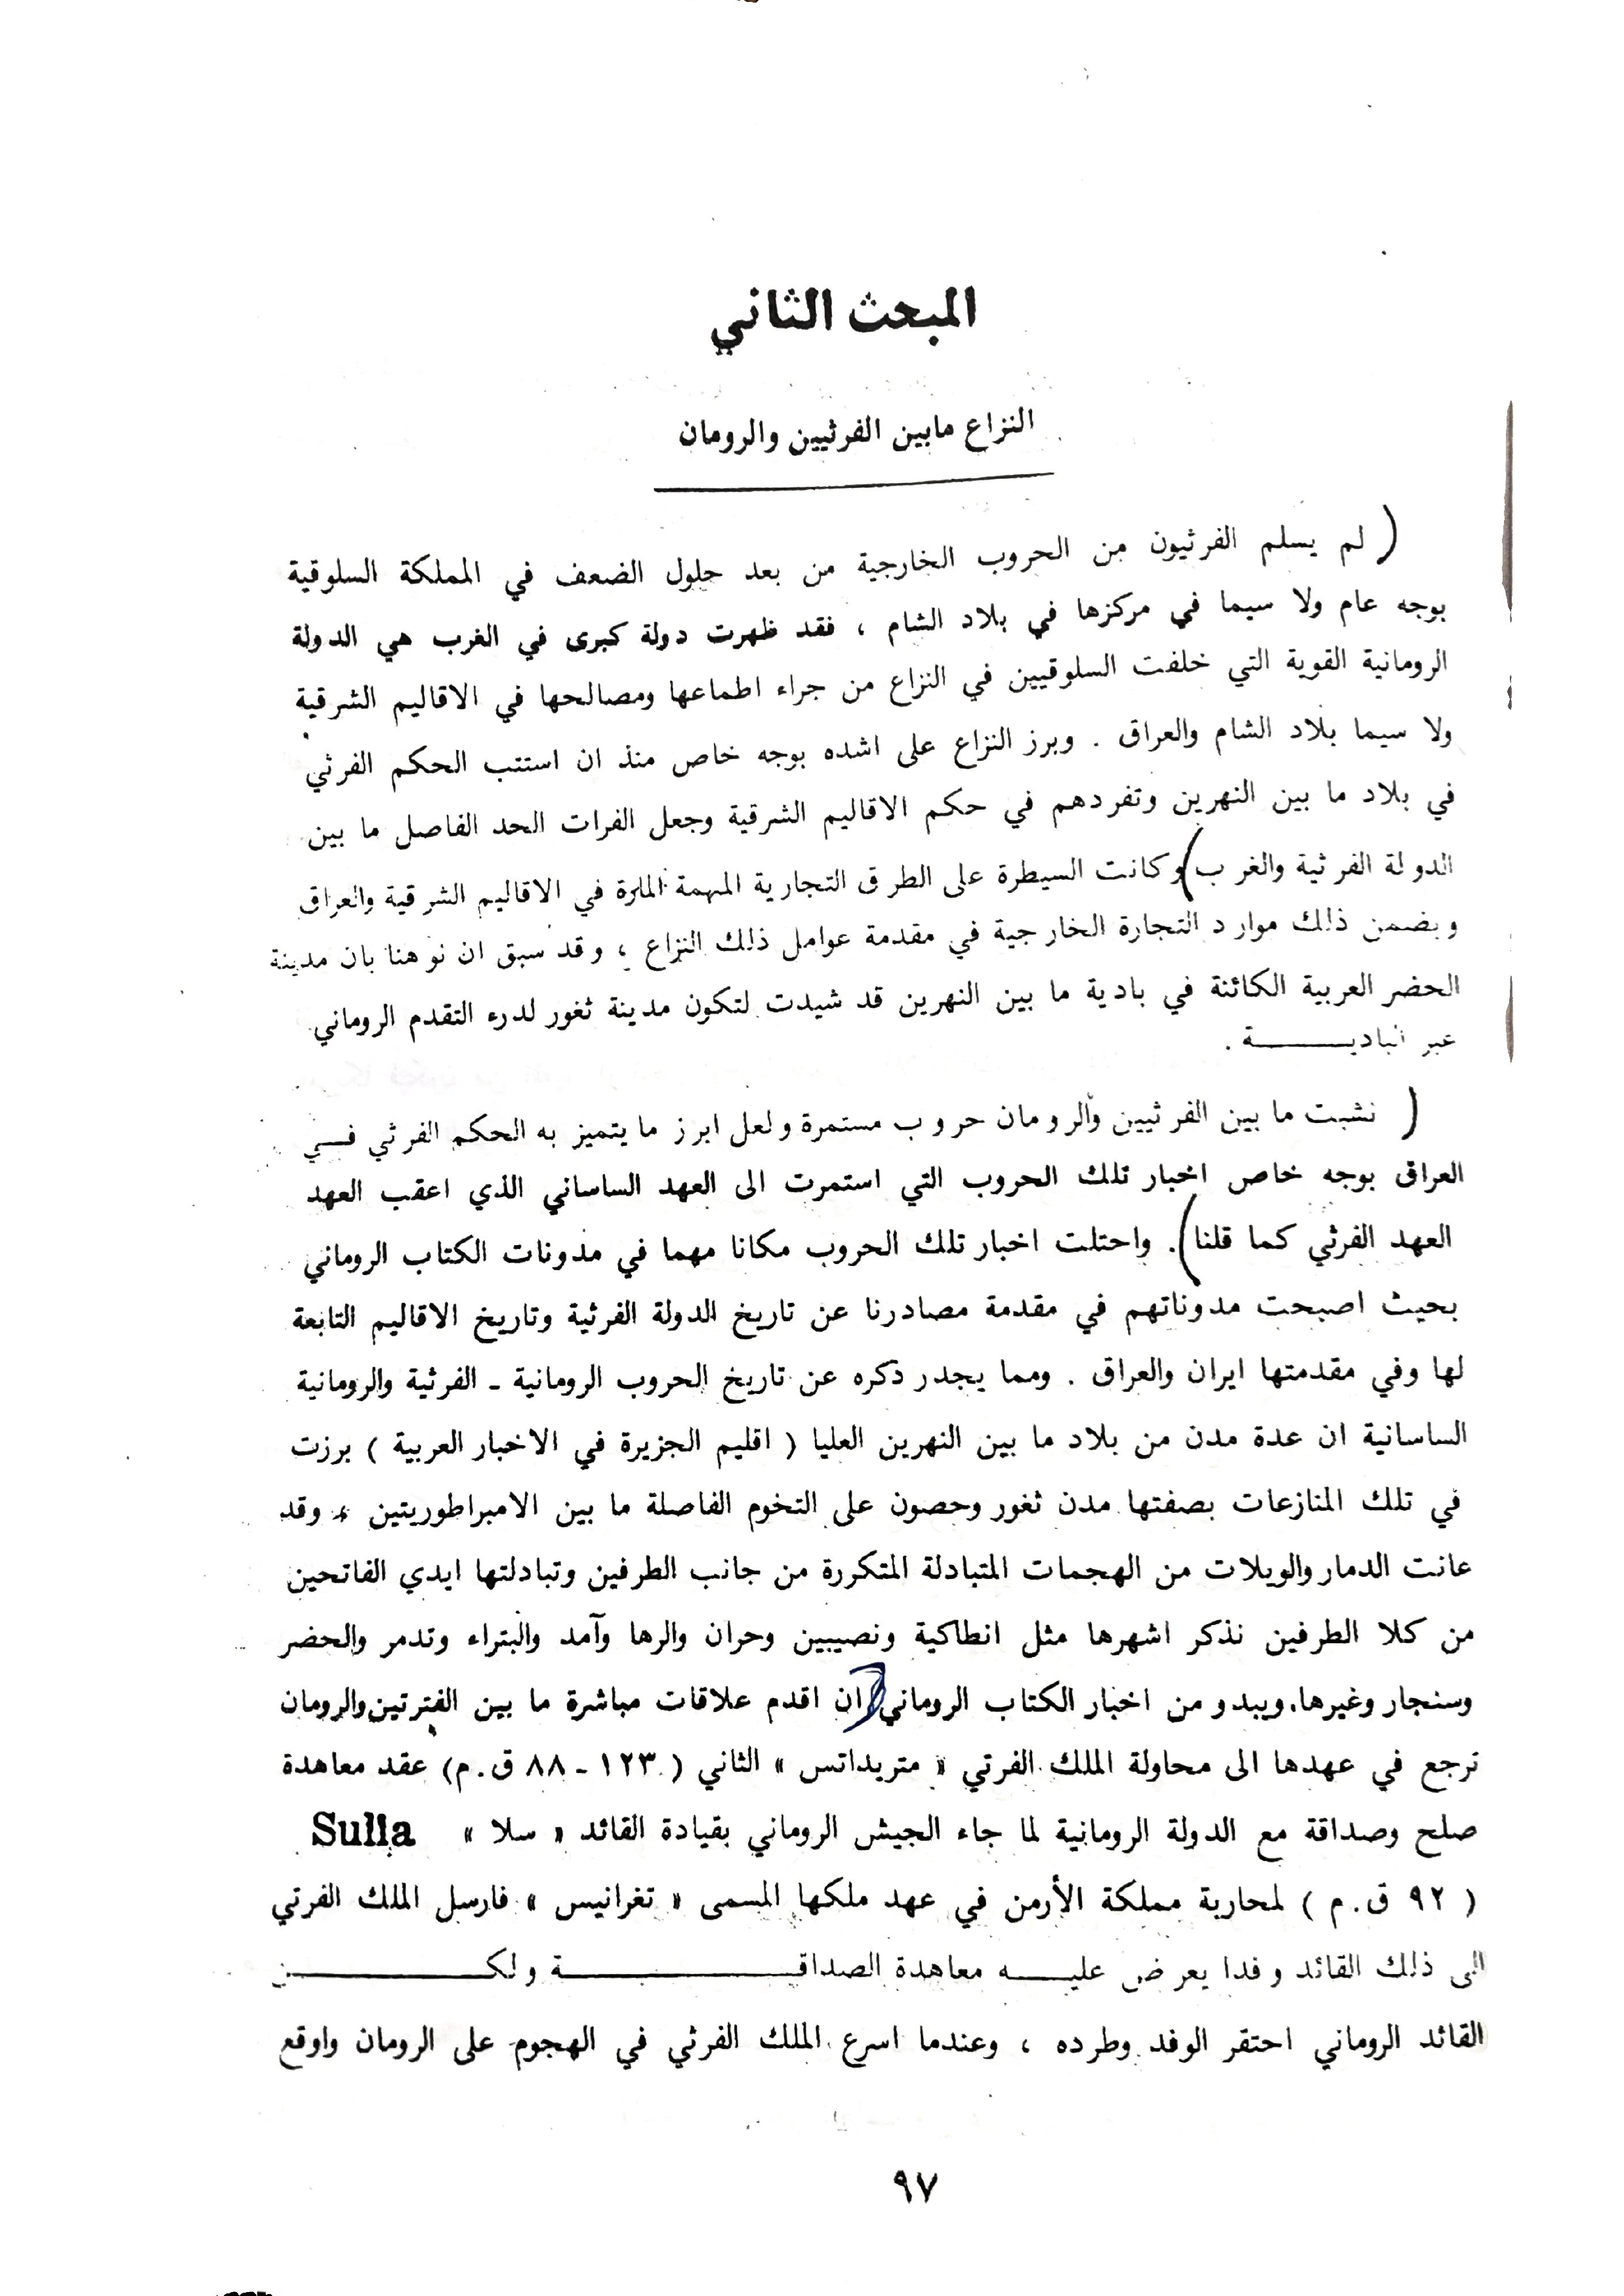 المبحث الثاني
النزاع مابين الفرثيين والرومان
( لم يسلم الفرثيون من الحروب الخارجية من بعد حلول الضعف في المملكة السلوقية
بوجه عام ولا سيما في مركزها في بلاد الشام ، فقد ظهرت دولة كبرى في الغرب هي الدولة
الرومانية القوية التي خلفت السلوقيين في النزاع من جراء اطماعها ومصالحها في الاقاليم الشرقية
ولا سيما بلاد الشام والعراق . وبرز النزاع على اشده بوجه خاص منذ ان استتب الحكم الفرثي
في بلاد ما بين النهرين وتفردهم في حكم الاقاليم الشرقية وجعل الفرات الحد الفاصل ما بين
الدولة الفرثية والغرب ) وكانت السيطرة على الطرق التجارية المهمة المارة في الاقاليم الشرقية والعراق
وبضمن ذلك موارد التجارة الخارجية في مقدمة عوامل ذلك النزاع ، وقد سبق ان نوهنا بان مدينة
الحضر العربية الكائنة في بادية ما بين النهرين قد شيدت لتكون مدينة ثغور لدرء التقدم الروماني
عبر الباديـــــة .
( نشبت ما بين الفرثيين والرومان حروب مستمرة ولعل ابرز ما يتميز به الحكم الفرثي فــي
العراق بوجه خاص اخبار تلك الحروب التي استمرت الى العهد الساساني الذي اعقب العهد
العهد الفرثي كما قلنا ) . واحتلت اخبار تلك الحروب مكانا مهما في مدونات الكتاب الروماني
بحيث اصبحت مدوناتهم في مقدمة مصادرنا عن تاريخ الدولة الفرثية وتاريخ الاقاليم التابعة
لها وفي مقدمتها ايران والعراق . ومما يجدر ذكره عن تاريخ الحروب الرومانية ـ الفرثية والرومانية
الساسانية ان عدة مدن من بلاد ما بين النهرين العليا ( اقليم الجزيرة في الاخبار العربية ) برزت
في تلك المنازعات بصفتها مدن ثغور وحصون على التخوم الفاصلة ما بين الامبراطوريتين ، وقد
عانت الدمار والويلات من الهجمات المتبادلة المتكررة من جانب الطرفين وتبادلتها ايدي الفاتحين
من كلا الطرفين نذكر اشهرها مثل انطاكية ونصيبين وحران والرها وآمد والبتراء وتدمر والحضر
وسنجار وغيرها. ويبدو من اخبار الكتاب الروماني ( ان اقدم علاقات مباشرة ما بين الفترتين والرومان
ترجع في عهدها الى محاولة الملك الفرتي « متريداتس » الثاني ( ١٢٣ ـ ٨٨ ق.م) عقد معاهدة
صلح وصداقة مع الدولة الرومانية لما جاء الجيش الروماني بقيادة القائد « سلا » Sulla
( ٩٢ ق.م ) لمحاربة مملكة الأرمن في عهد ملكها المسمى « تغرانيس » فارسل الملك الفرتي
الى ذلك القائد وفدا يعرض عليــه معاهدة الصداقـــــــــة ولكـــــــــن
القائد الروماني احتقر الوفد وطرده ، وعندما اسرع الملك الفرثي في الهجوم على الرومان واوقع
٩٧